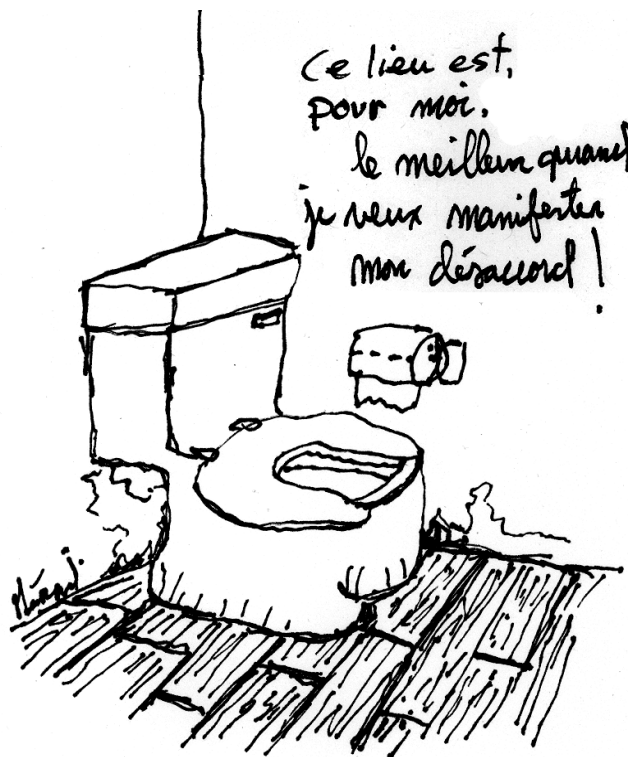 Ce lieu est,
pour moi,
le meilleur quand
je veux manifester
mon désaccord !